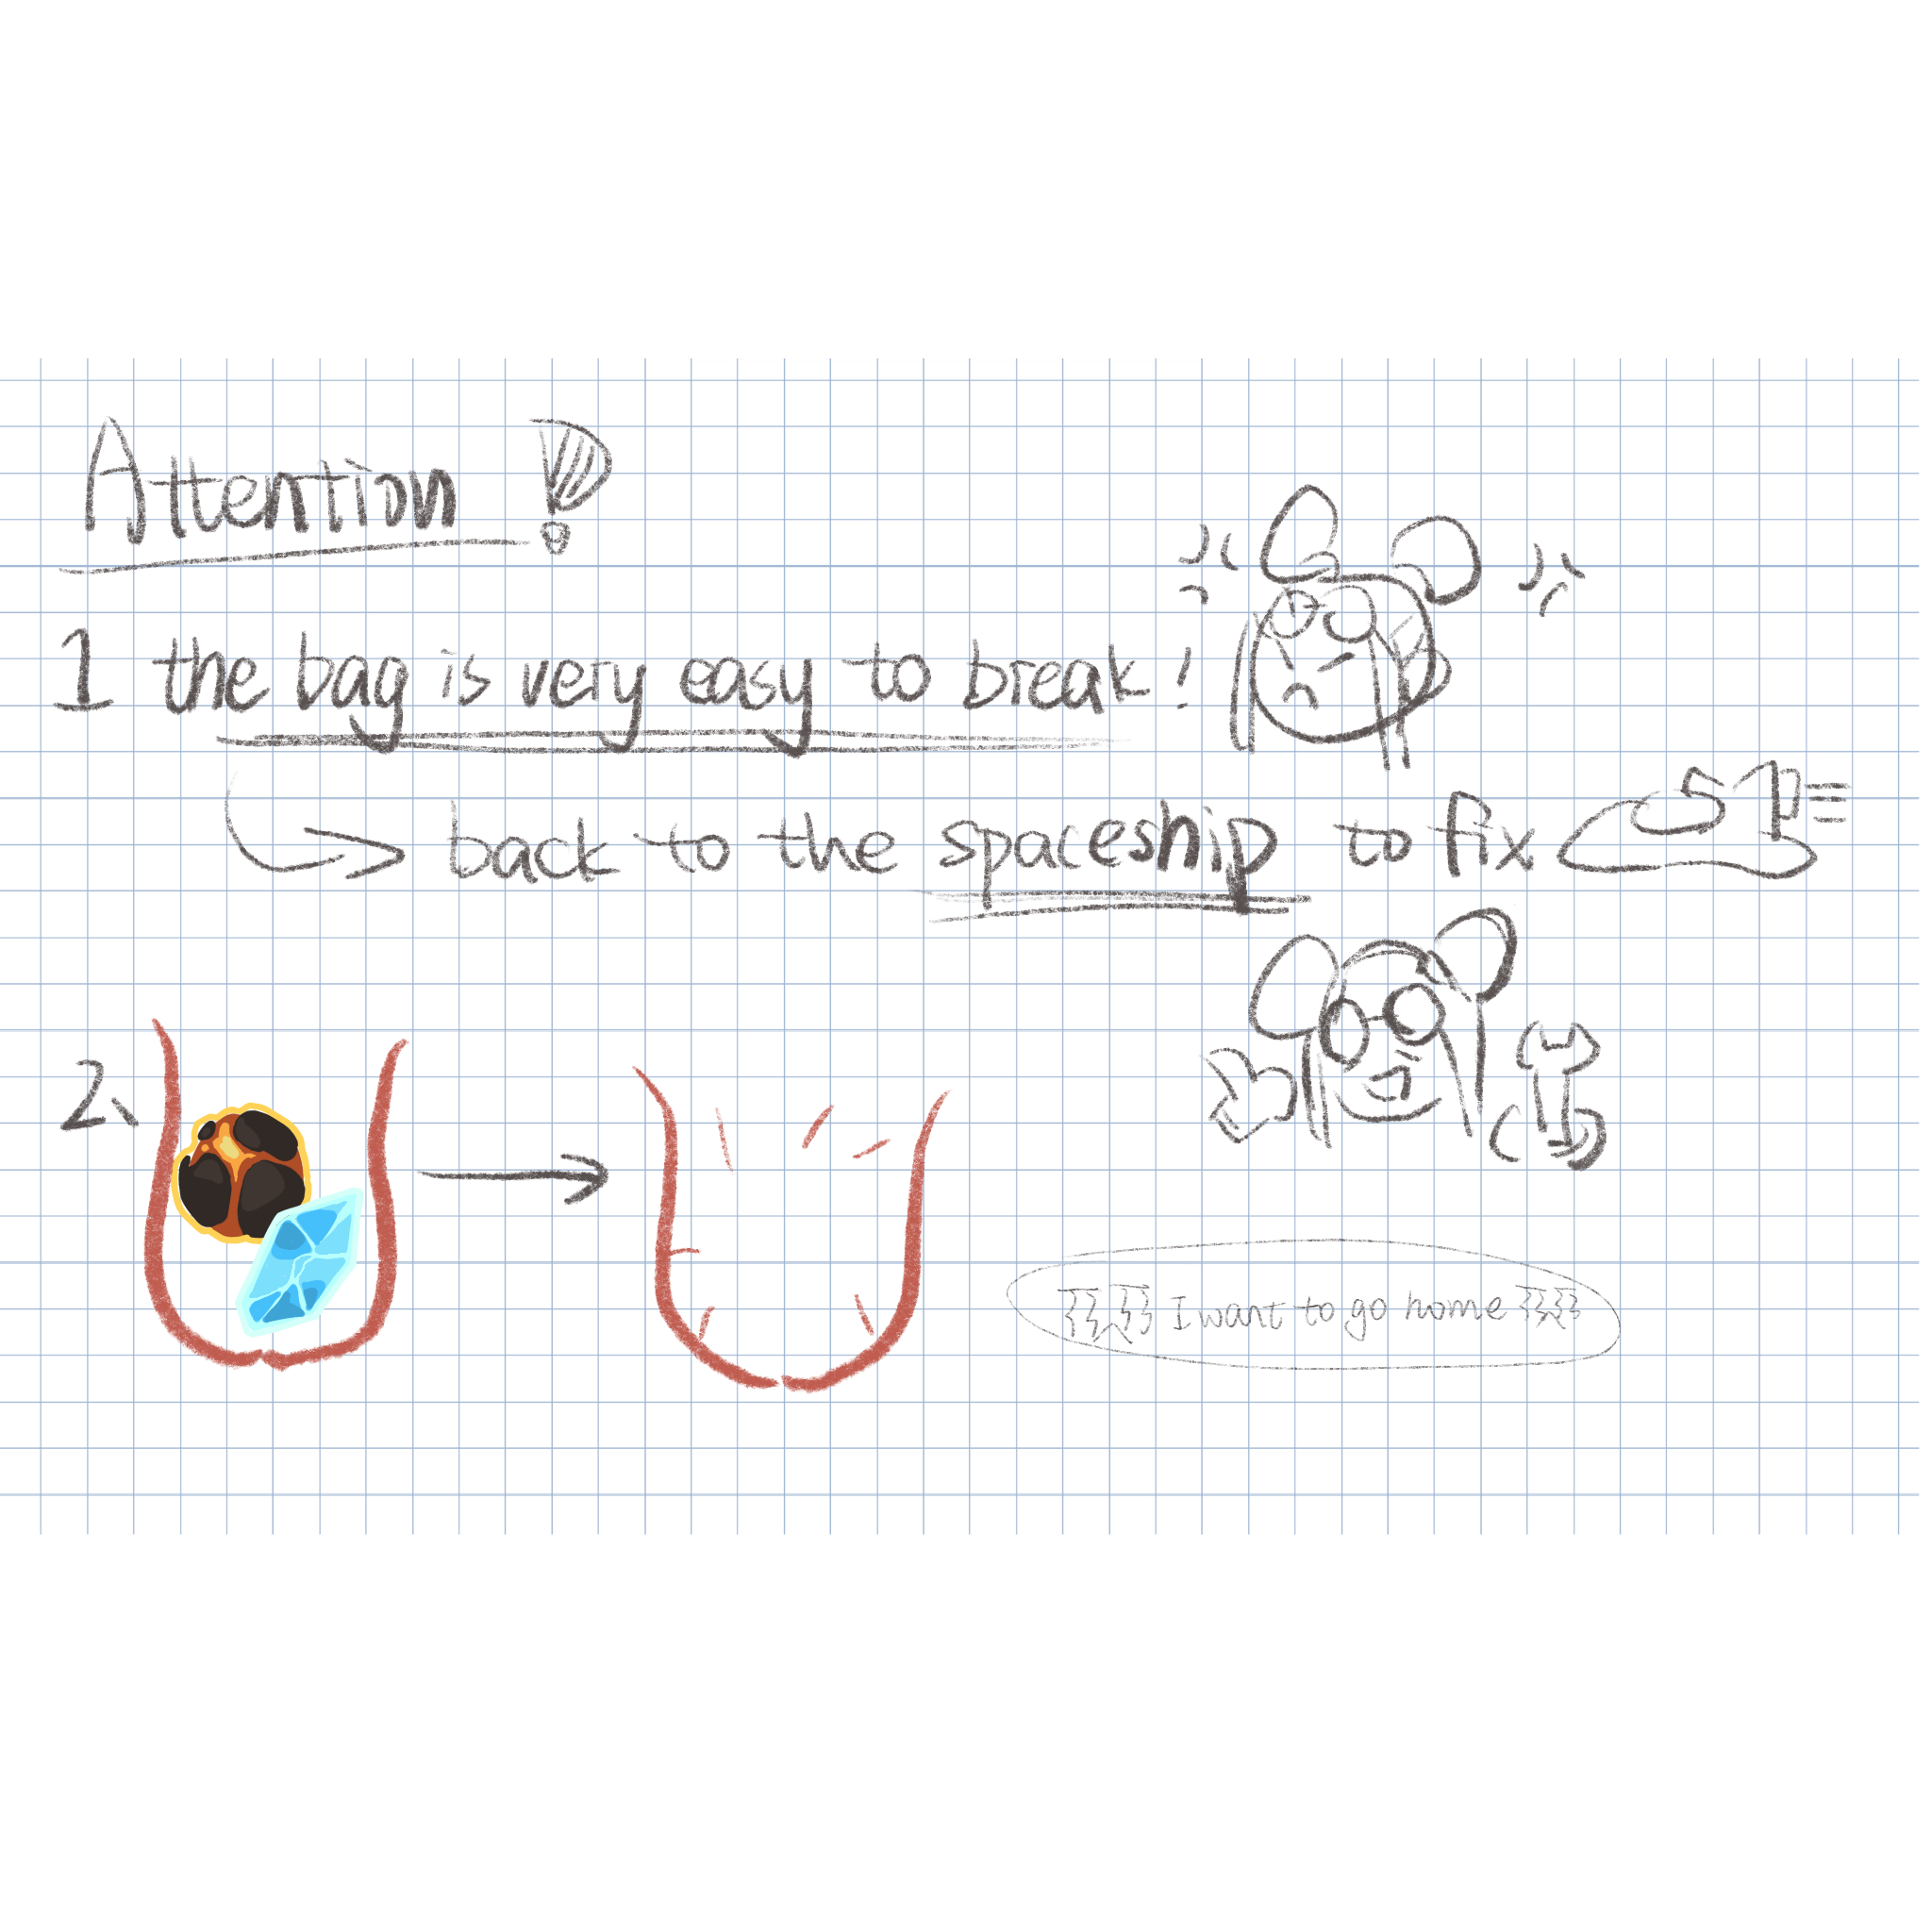 Attention !
1 the bag is very easy to break!
back to the spaceship to fix
2、
I want to go home